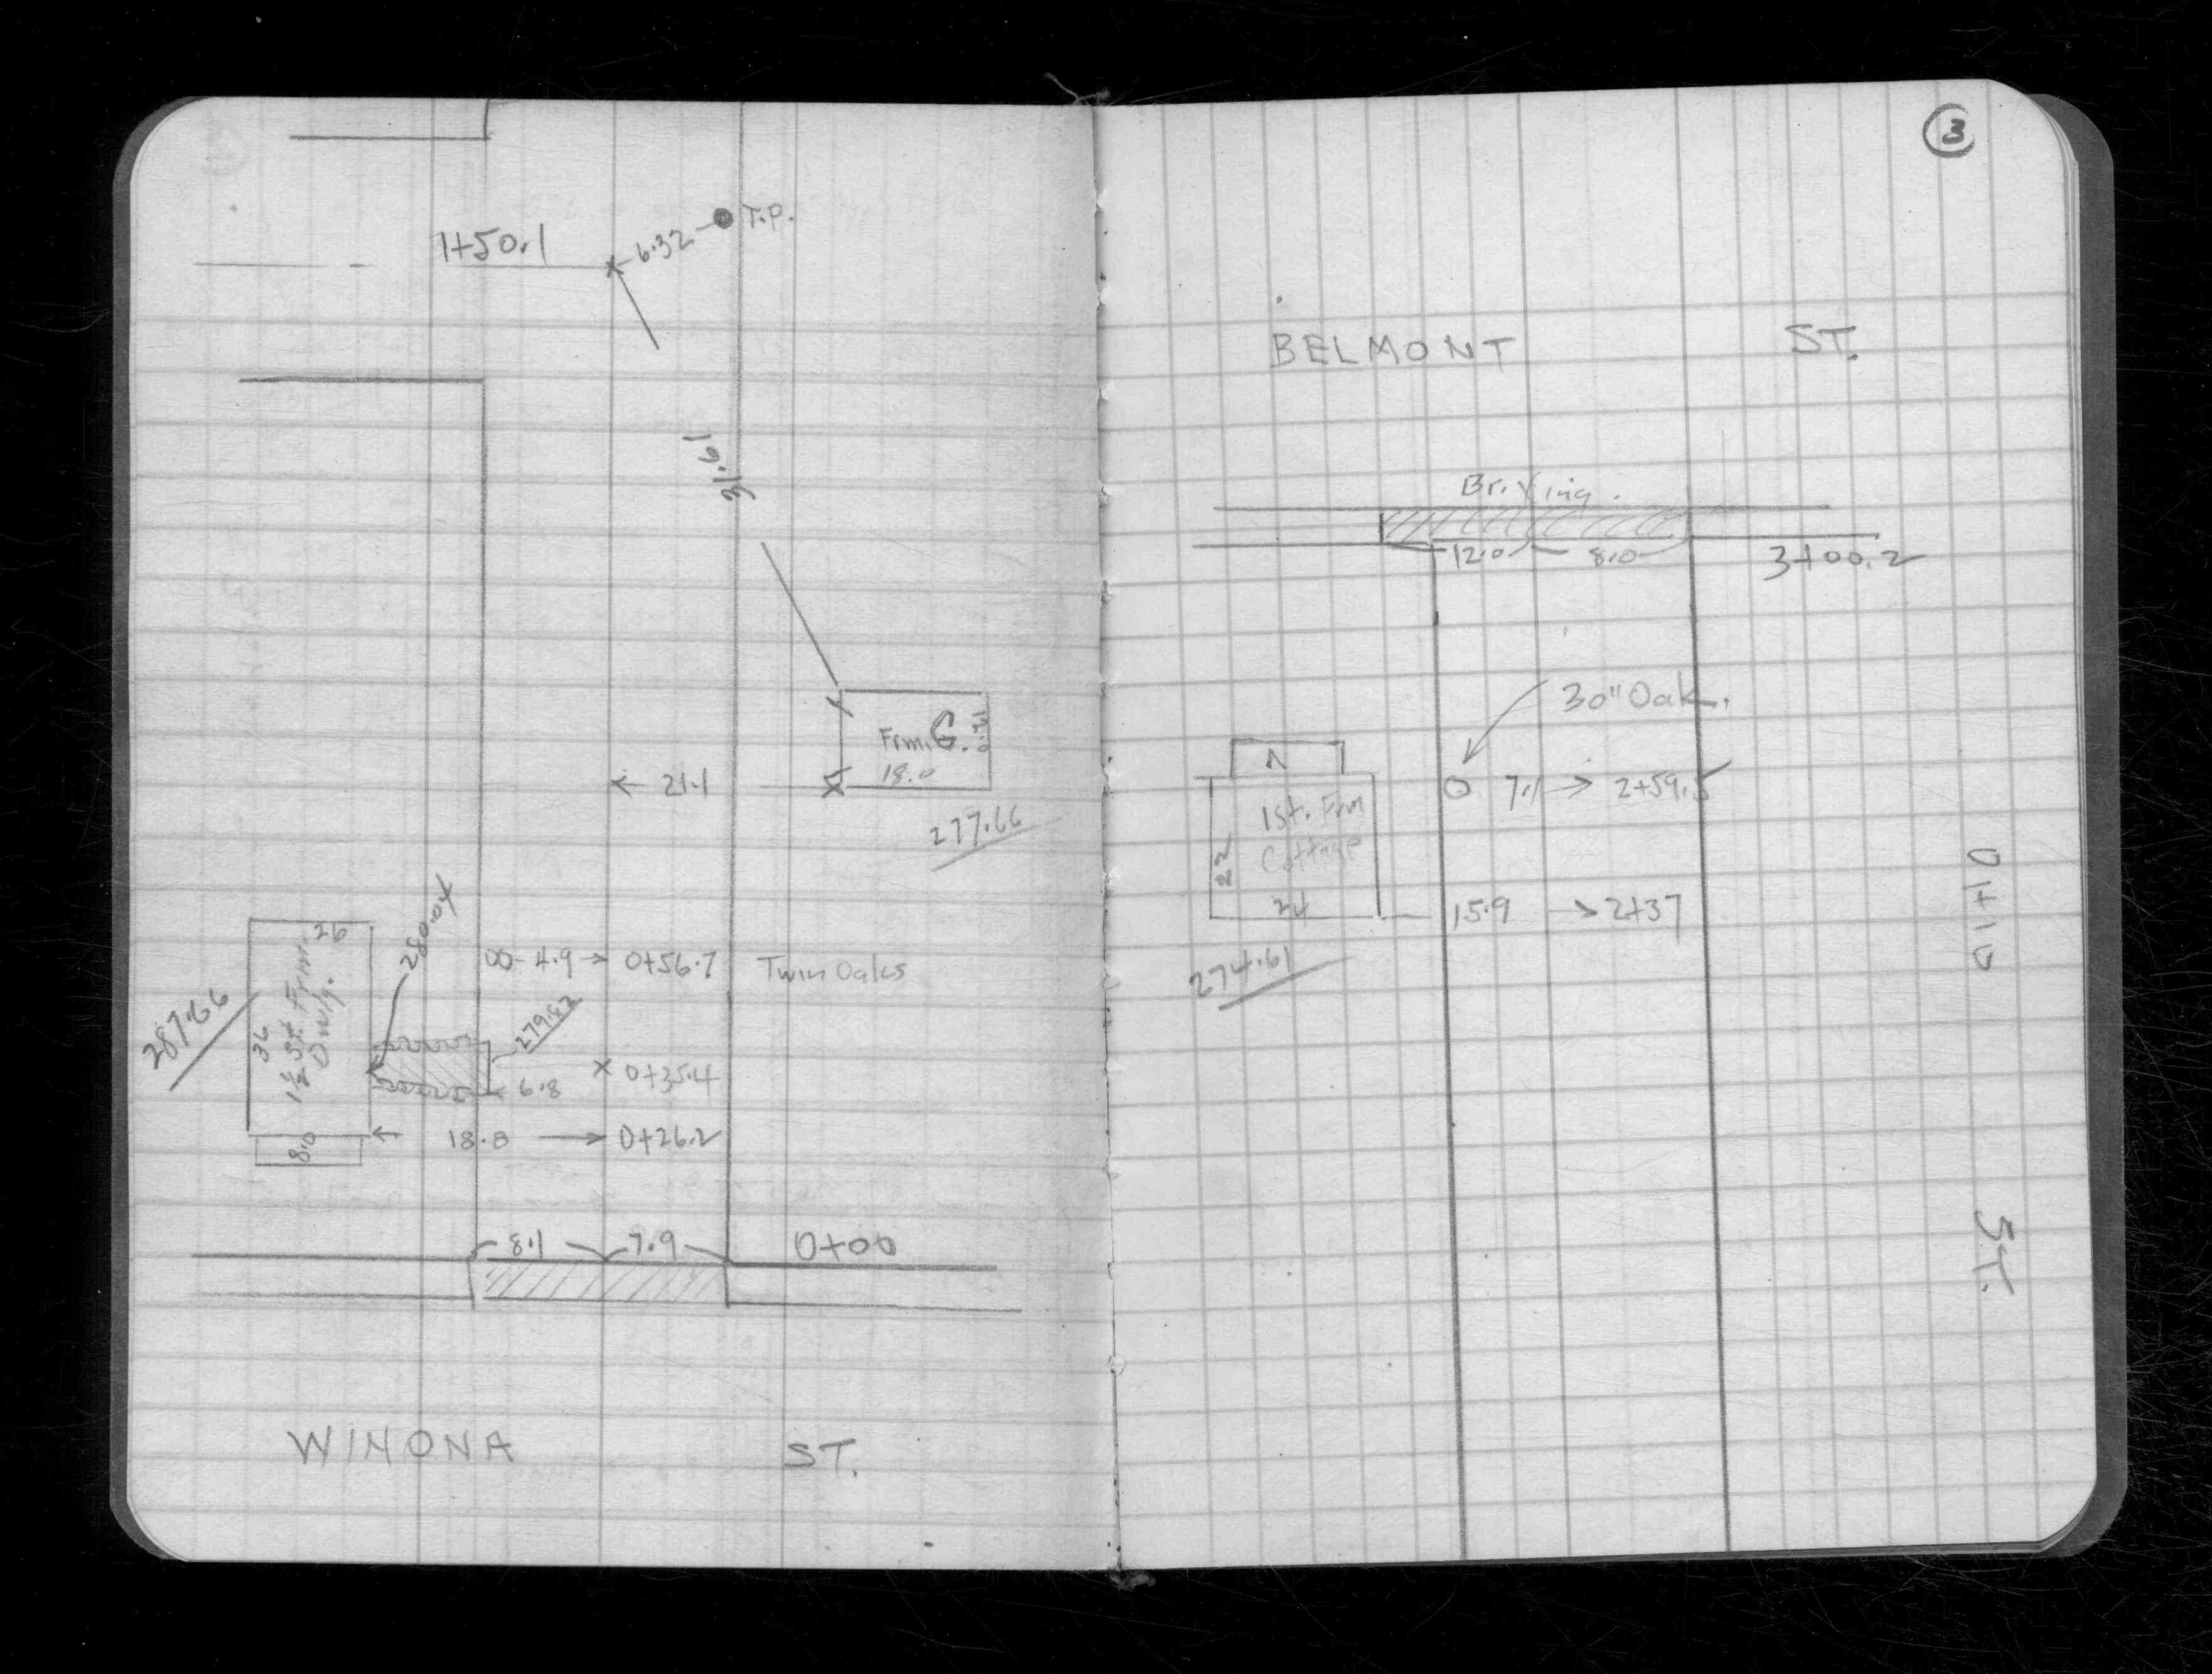 1+50.1
6.32
T.P.
31.61
Frm. G.
18.0
21.1
277.66
26
280.04
00- 4.9 → 0+56.7 Twin Oaks
287.66
36
1½ St. Frm.
Dwlg.
279.82
6.8
x 0+35.4
8.0
18.8 → 0+26.2
8.1 7.9 0+00
WINONA ST.
3
BELMONT ST.
12.0 8.0
3+00.2
30" Oak.
O 7.1 → 2+59.5
1 St. Frm
Cottage
22
24
15.9 → 2+37
274.61
OHIO ST.